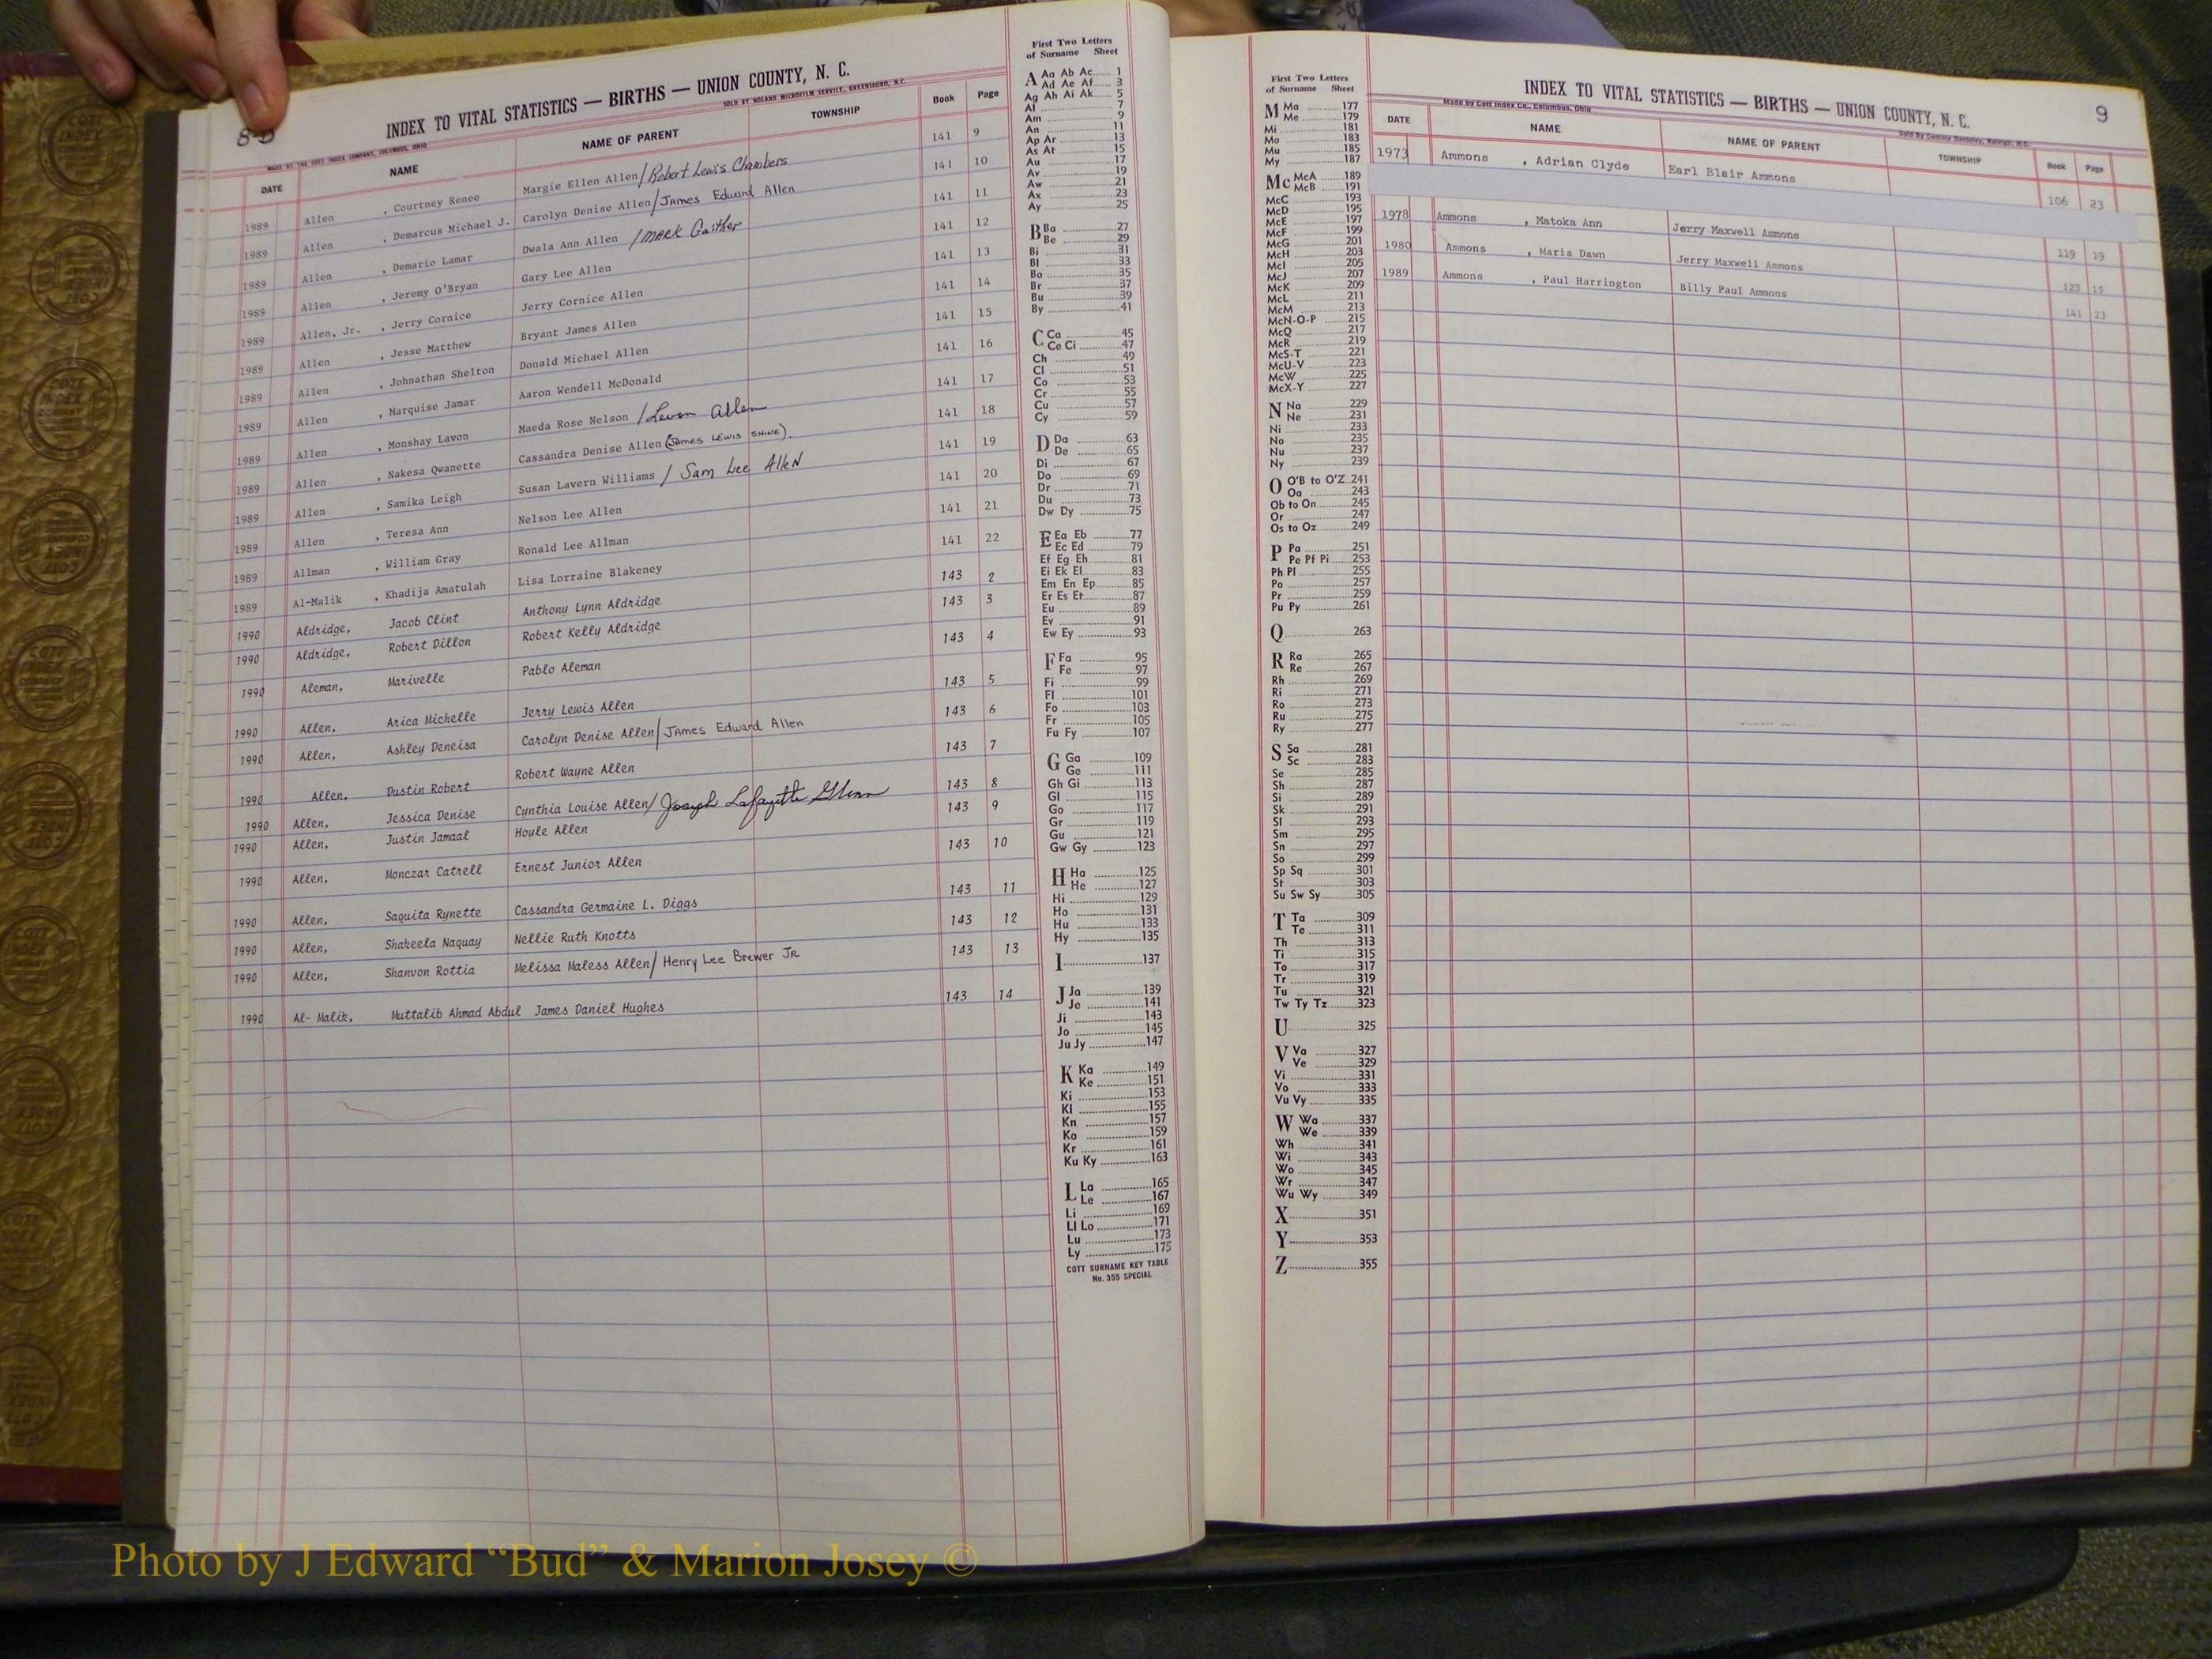 8-B
INDEX TO VITAL STATISTICS — BIRTHS — UNION COUNTY, N. C.
MADE BY THE COTT INDEX COMPANY, COLUMBUS, OHIO SOLD BY NOLAND MICROFILM SERVICE, GREENSBORO, N.C.
DATE NAME NAME OF PARENT TOWNSHIP Book Page
1989 Allen , Courtney Renee Margie Ellen Allen/Robert Lewis Chambers 141 9
1989 Allen , Demarcus Michael J. Carolyn Denise Allen/James Edward Allen 141 10
1989 Allen , Demario Lamar Dwala Ann Allen /Mark Gaither 141 11
1989 Allen , Jeremy O'Bryan Gary Lee Allen 141 12
1989 Allen, Jr. , Jerry Cornice Jerry Cornice Allen 141 13
1989 Allen , Jesse Matthew Bryant James Allen 141 14
1989 Allen , Johnathan Shelton Donald Michael Allen 141 15
1989 Allen , Marquise Jamar Aaron Wendell McDonald 141 16
1989 Allen , Monshay Lavon Maeda Rose Nelson /Levon Allen 141 17
1989 Allen , Nakesa Qwanette Cassandra Denise Allen (James Lewis Shine). 141 18
1989 Allen , Samika Leigh Susan Lavern Williams / Sam Lee Allen 141 19
1989 Allen , Teresa Ann Nelson Lee Allen 141 20
1989 Allman , William Gray Ronald Lee Allman 141 21
1989 Al-Malik , Khadija Amatulah Lisa Lorraine Blakeney 141 22
1990 Aldridge, Jacob Clint Anthony Lynn Aldridge 143 2
1990 Aldridge, Robert Dillon Robert Kelly Aldridge 143 3
1990 Aleman, Marivelle Pablo Aleman 143 4
1990 Allen, Arica Michelle Jerry Lewis Allen 143 5
1990 Allen, Ashley Deneisa Carolyn Denise Allen/James Edward Allen 143 6
1990 Allen, Dustin Robert Robert Wayne Allen 143 7
1990 Allen, Jessica Denise Cynthia Louise Allen/Joseph Lafayette Glenn 143 8
1990 Allen, Justin Jamaal Houle Allen 143 9
1990 Allen, Monczar Catrell Ernest Junior Allen 143 10
1990 Allen, Saquita Rynette Cassandra Germaine L. Diggs 143 11
1990 Allen, Shakeela Naquay Nellie Ruth Knotts 143 12
1990 Allen, Shanvon Rottia Melissa Maless Allen/Henry Lee Brewer Jr 143 13
1990 Al-Malik, Muttalib Ahmad Abdul James Daniel Hughes 143 14
First Two Letters
of Surname Sheet
A Aa Ab Ac 1
Ad Ae Af 3
Ag Ah Ai Ak 5
Al 7
Am 9
An 11
Ap Ar 13
As At 15
Au 17
Av 19
Aw 21
Ax 23
Ay 25
B Ba 27
Be 29
Bi 31
Bl 33
Bo 35
Br 37
Bu 39
By 41
C Ca 45
Ce Ci 47
Ch 49
Cl 51
Co 53
Cr 55
Cu 57
Cy 59
D Da 63
De 65
Di 67
Do 69
Dr 71
Du 73
Dw Dy 75
E Ea Eb 77
Ec Ed 79
Ef Eg Eh 81
Ei Ek El 83
Em En Ep 85
Er Es Et 87
Eu 89
Ev 91
Ew Ey 93
F Fa 95
Fe 97
Fi 99
Fl 101
Fo 103
Fr 105
Fu Fy 107
G Ga 109
Ge 111
Gh Gi 113
Gl 115
Go 117
Gr 119
Gu 121
Gw Gy 123
H Ha 125
He 127
Hi 129
Ho 131
Hu 133
Hy 135
I 137
J Ja 139
Je 141
Ji 143
Jo 145
Ju Jy 147
K Ka 149
Ke 151
Ki 153
Kl 155
Kn 157
Ko 159
Kr 161
Ku Ky 163
L La 165
Le 167
Li 169
Ll Lo 171
Lu 173
Ly 175
COTT SURNAME KEY TABLE
No. 355 SPECIAL
First Two Letters
of Surname Sheet
M Ma 177
Me 179
Mi 181
Mo 183
Mu 185
My 187
Mc McA 189
McB 191
McC 193
McD 195
McE 197
McF 199
McG 201
McH 203
McI 205
McJ 207
McK 209
McL 211
McM 213
McN-O-P 215
McQ 217
McR 219
McS-T 221
McU-V 223
McW 225
McX-Y 227
N Na 229
Ne 231
Ni 233
No 235
Nu 237
Ny 239
O O'B to O'Z 241
Oa 243
Ob to On 245
Or 247
Os to Oz 249
P Pa 251
Pe Pf Pi 253
Ph Pl 255
Po 257
Pr 259
Pu Py 261
Q 263
R Ra 265
Re 267
Rh 269
Ri 271
Ro 273
Ru 275
Ry 277
S Sa 281
Sc 283
Se 285
Sh 287
Si 289
Sk 291
Sl 293
Sm 295
Sn 297
So 299
Sp Sq 301
St 303
Su Sw Sy 305
T Ta 309
Te 311
Th 313
Ti 315
To 317
Tr 319
Tu 321
Tw Ty Tz 323
U 325
V Va 327
Ve 329
Vi 331
Vo 333
Vu Vy 335
W Wa 337
We 339
Wh 341
Wi 343
Wo 345
Wr 347
Wu Wy 349
X 351
Y 353
Z 355
9
INDEX TO VITAL STATISTICS — BIRTHS — UNION COUNTY, N. C.
Made by Cott Index Co., Columbus, Ohio Sold By Raleigh, N.C.
DATE NAME NAME OF PARENT TOWNSHIP Book Page
1973 Ammons , Adrian Clyde Earl Blair Ammons 106 23
1978 Ammons , Matoka Ann Jerry Maxwell Ammons 119 19
1980 Ammons , Maria Dawn Jerry Maxwell Ammons 123 15
1989 Ammons , Paul Harrington Billy Paul Ammons 141 23
Photo by J Edward “Bud” & Marion Josey ©